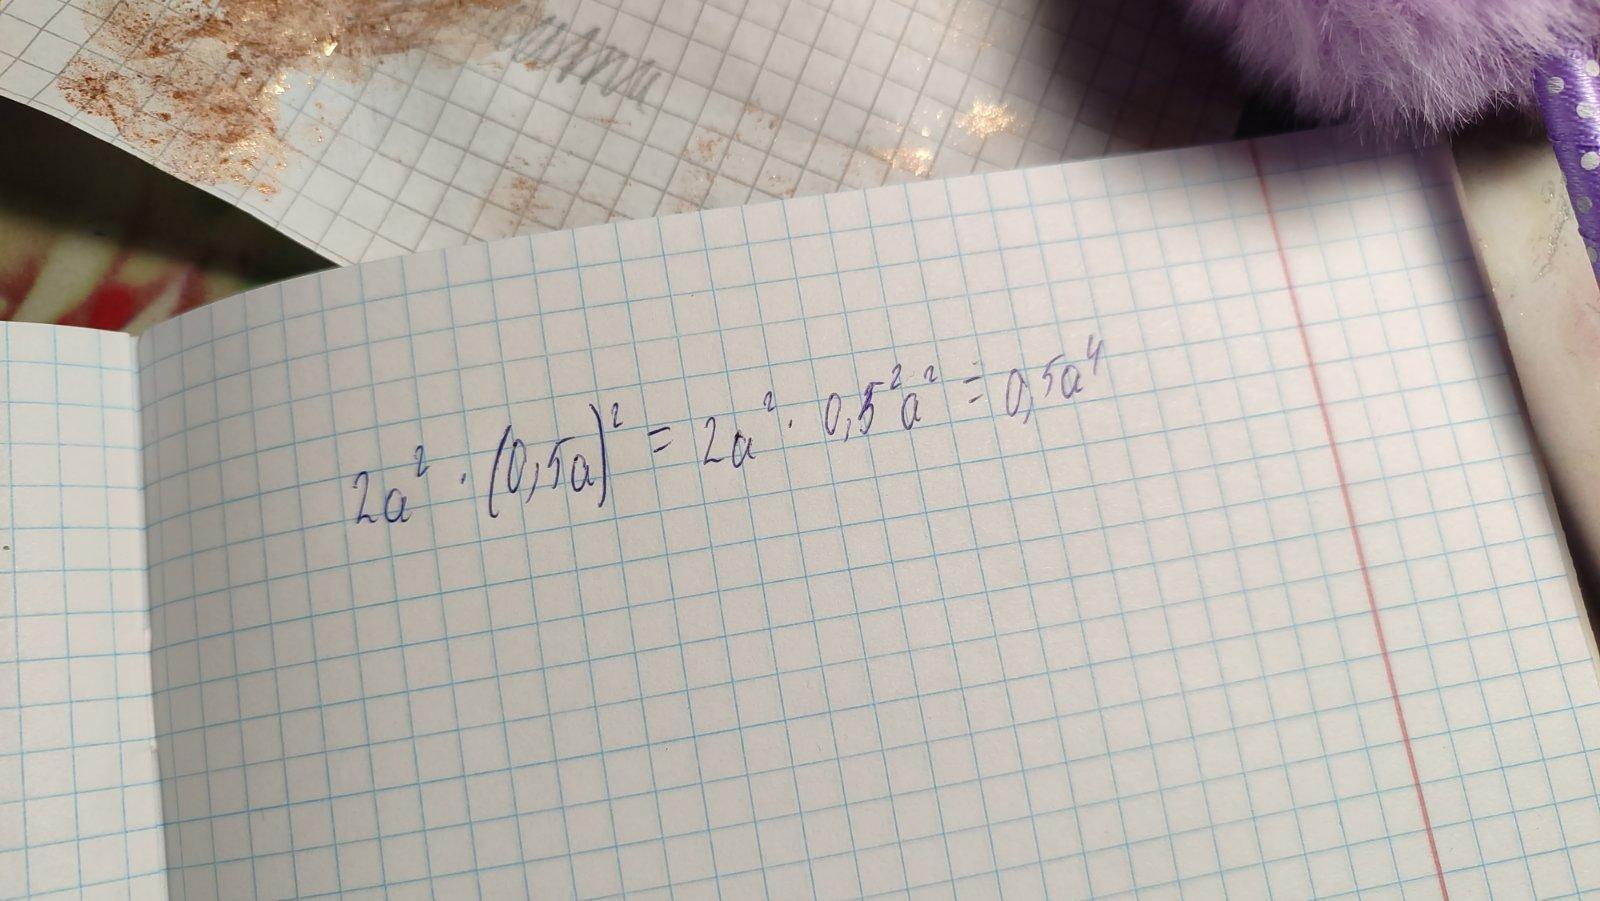 2a² · (0,5a)² = 2a² · 0,5²a² = 0,5a⁴